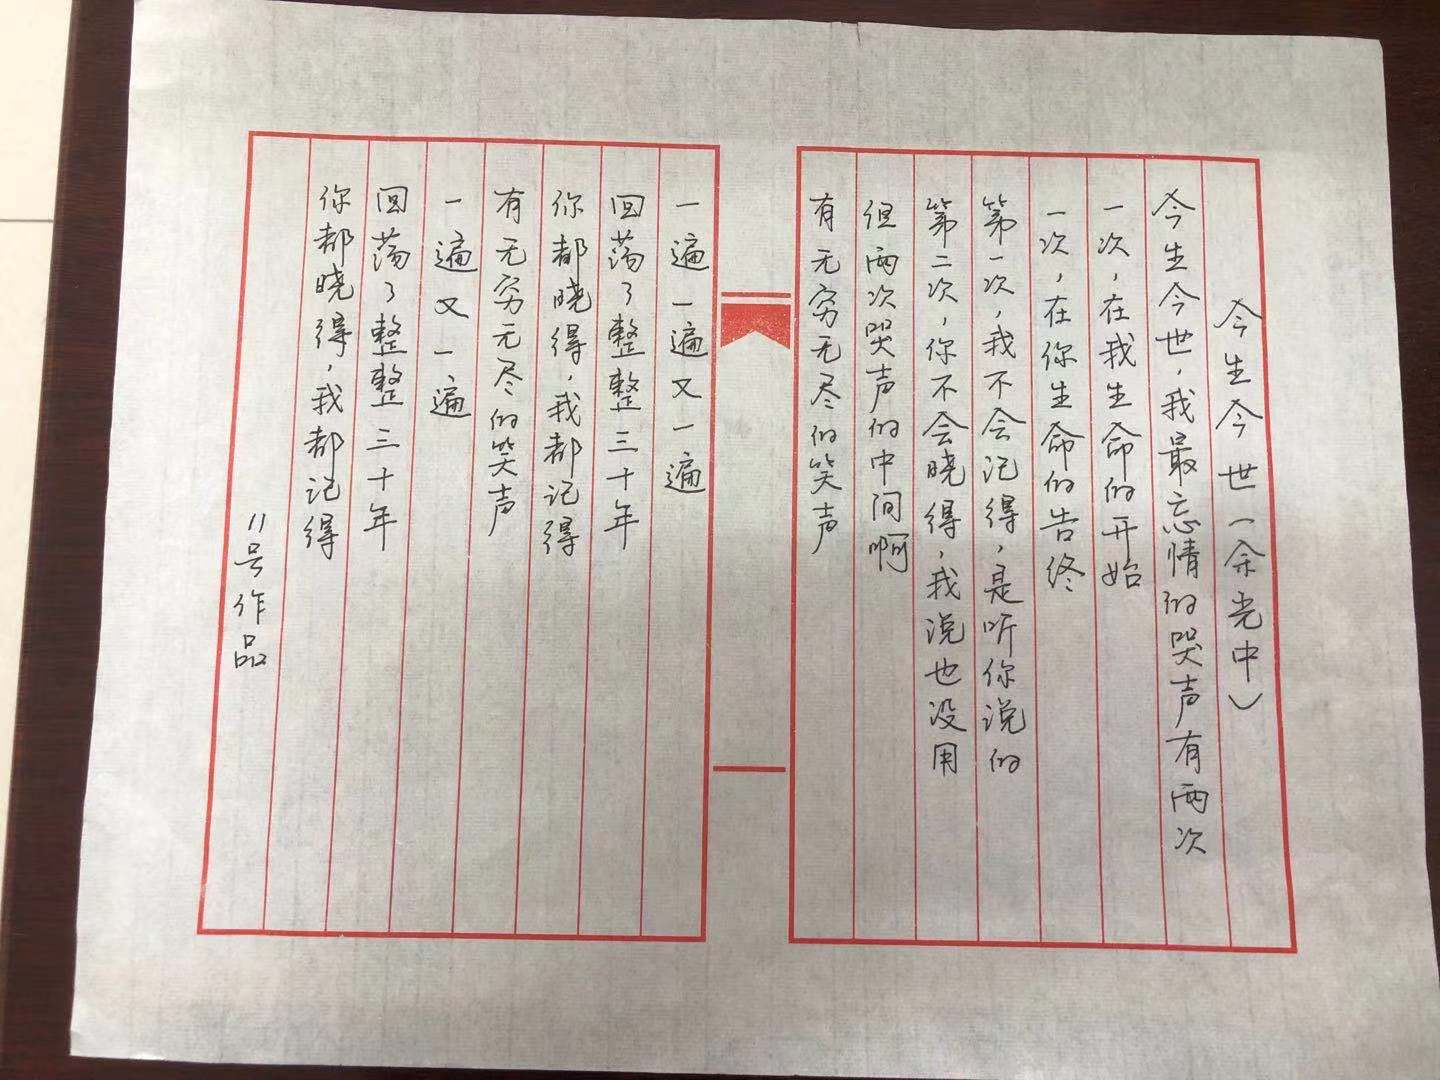 今生今世(余光中)
今生今世,我最忘情的哭声有两次
一次,在我生命的开始
一次,在你生命的告终
第一次,我不会记得,是听你说的
第二次,你不会晓得,我说也没用
但两次哭声的中间啊
有无穷无尽的笑声
一遍一遍又一遍
回荡了整整三十年
你都晓得,我都记得
有无穷无尽的笑声
一遍又一遍
回荡了整整三十年
你都晓得,我都记得
11号作品